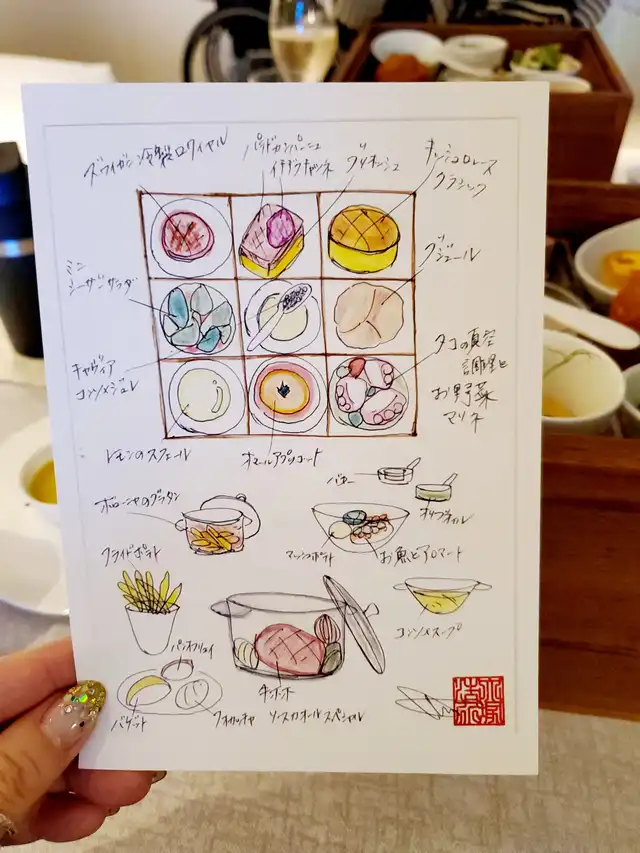 ズワイガニ冷製ロワイヤル
パテドカンパーニュ
キッシュロレーヌ
クラシック
ミニ
シーザーサラダ
グジェール
キャヴィア
コンソメジュレ
タコの真空
調理と
お野菜
マリネ
レモンのスフェール
バター
オリーブオイル
ボローニャのグラタン
マッシュポテト
お魚とアロマート
フライドポテト
コンソメスープ
バゲット
フォカッチャ
ソースカオールスペシャル